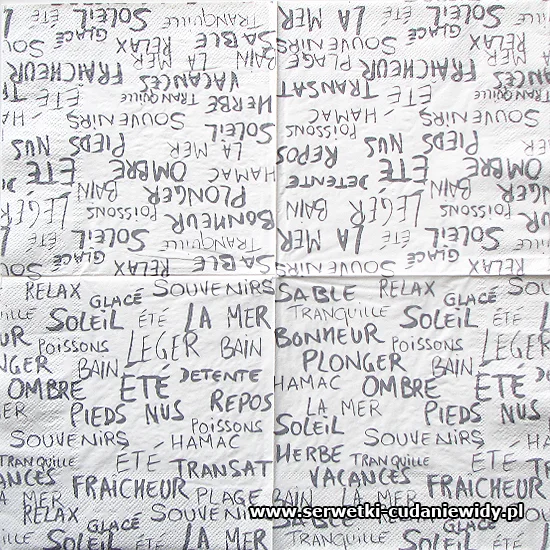 SOLEIL ÉTÉ LA MER
TRANQUILLE SOLEIL ÉTÉ
SABLE GLACÉ SOUVENIRS
RELAX SABLE GLACÉ
BAIN LA MER PLAGE RELAX
FRAICHEUR BAIN LA MER
VACANCES TRANSAT FRAICHEUR
HERBE TRANQUILLE ÉTÉ VACANCES
TRANQUILLE ÉTÉ
SOUVENIRS HAMAC
SOLEIL POISSONS SOUVENIRS
LA MER PIEDS NUS REPOS
HAMAC OMBRE ÉTÉ DETENTE
PLONGER BAIN OMBRE ÉTÉ
BONHEUR POISSONS LEGER BAIN
TRANQUILLE SOLEIL ÉTÉ LA MER
SABLE RELAX GLACÉ SOUVENIRS
RELAX GLACÉ SOUVENIRS SABLE RELAX GLACÉ
SOLEIL ÉTÉ LA MER TRANQUILLE SOLEIL ÉTÉ
POISSONS LEGER BAIN BONHEUR POISSONS LEGER
PLONGER BAIN
OMBRE ÉTÉ DETENTE HAMAC OMBRE ÉTÉ
PIEDS NUS REPOS LA MER PIEDS NUS
POISSONS SOLEIL
SOUVENIRS HAMAC SOUVENIRS HAMAC
TRANQUILLE ÉTÉ TRANSAT HERBE TRANQUILLE ÉTÉ
FRAICHEUR VACANCES FRAICHEUR
LA MER PLAGE BAIN LA MER
RELAX SOUVENIRS SABLE RELAX
www.serwetki-cudaniewidy.pl
GLACÉ GLACÉ
SOLEIL ÉTÉ LA MER TRANQUILLE SOLEIL ÉTÉ